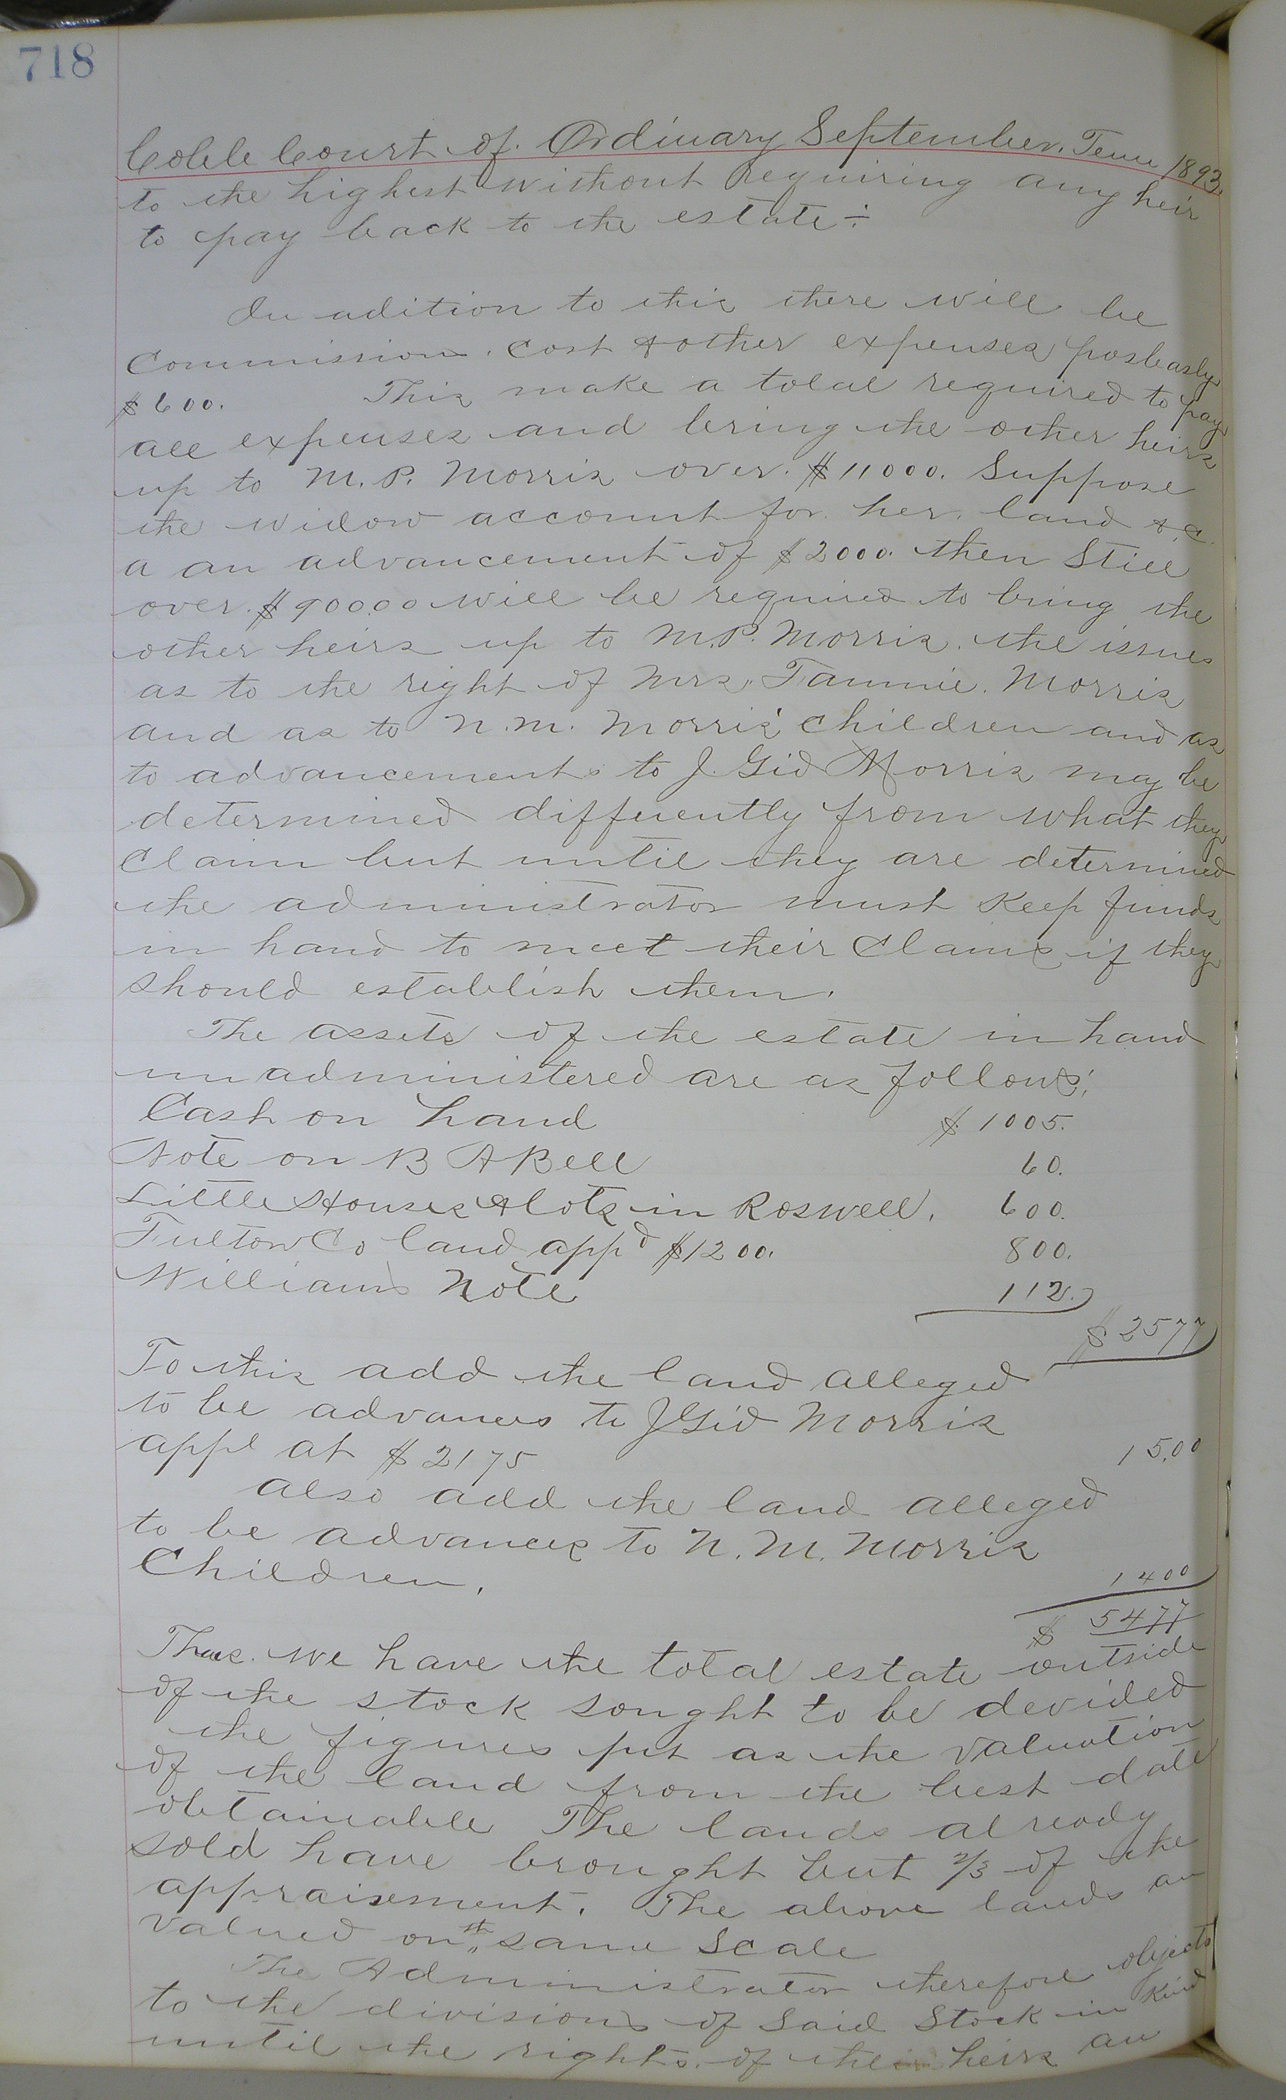 718
Cobb Court of Ordinary September Term 1893.
to the highest without requiring any heir
to pay back to the estate ÷
In adition to this there will be
Commission. Cost & other expenses posbasly
$600. This make a total required to pay
all expenses and bring the other heirs
up to M.P. Morris over $11000. Suppose
the widow account for her land &.c.
a an advancement of $2000. then Still
over $90000 will be required to bring the
other heirs up to M.P. Morris. the issues
as to the right of Mrs. Fannie. Morris
and as to N.M. Morris' Children and as
to advancements to J. Gid Morris may be
determined differently from what they
Claim but until they are determined
the administrator must Keep funds
in hand to meet their Claims if they
should establish them.
The assets of the estate in hand
unadministered are as follows;
Cash on hand $1005.
Note on B A Bell 60.
Little Houses & lots in Roswell. 600.
Fulton Co land appd $1200. 800.
Williams Note 112.
$2577
To this add the land alleged
to be advances to J Gid Morris
appd at $2175 1500
also add the land alleged
to be advances to N. M. Morris
Children. 1400
$ 5477
Thus. we have the total estate outside
of the stock sought to be devided
the figures put as the valuation
of the land from the best date
obtainable The lands already
sold have brought but 2/3 of the
appraisement. The above lands an
valued on th same Scale
The Administrator therefore objects
to the division of said Stock in Kind
until the rights of the heirs an